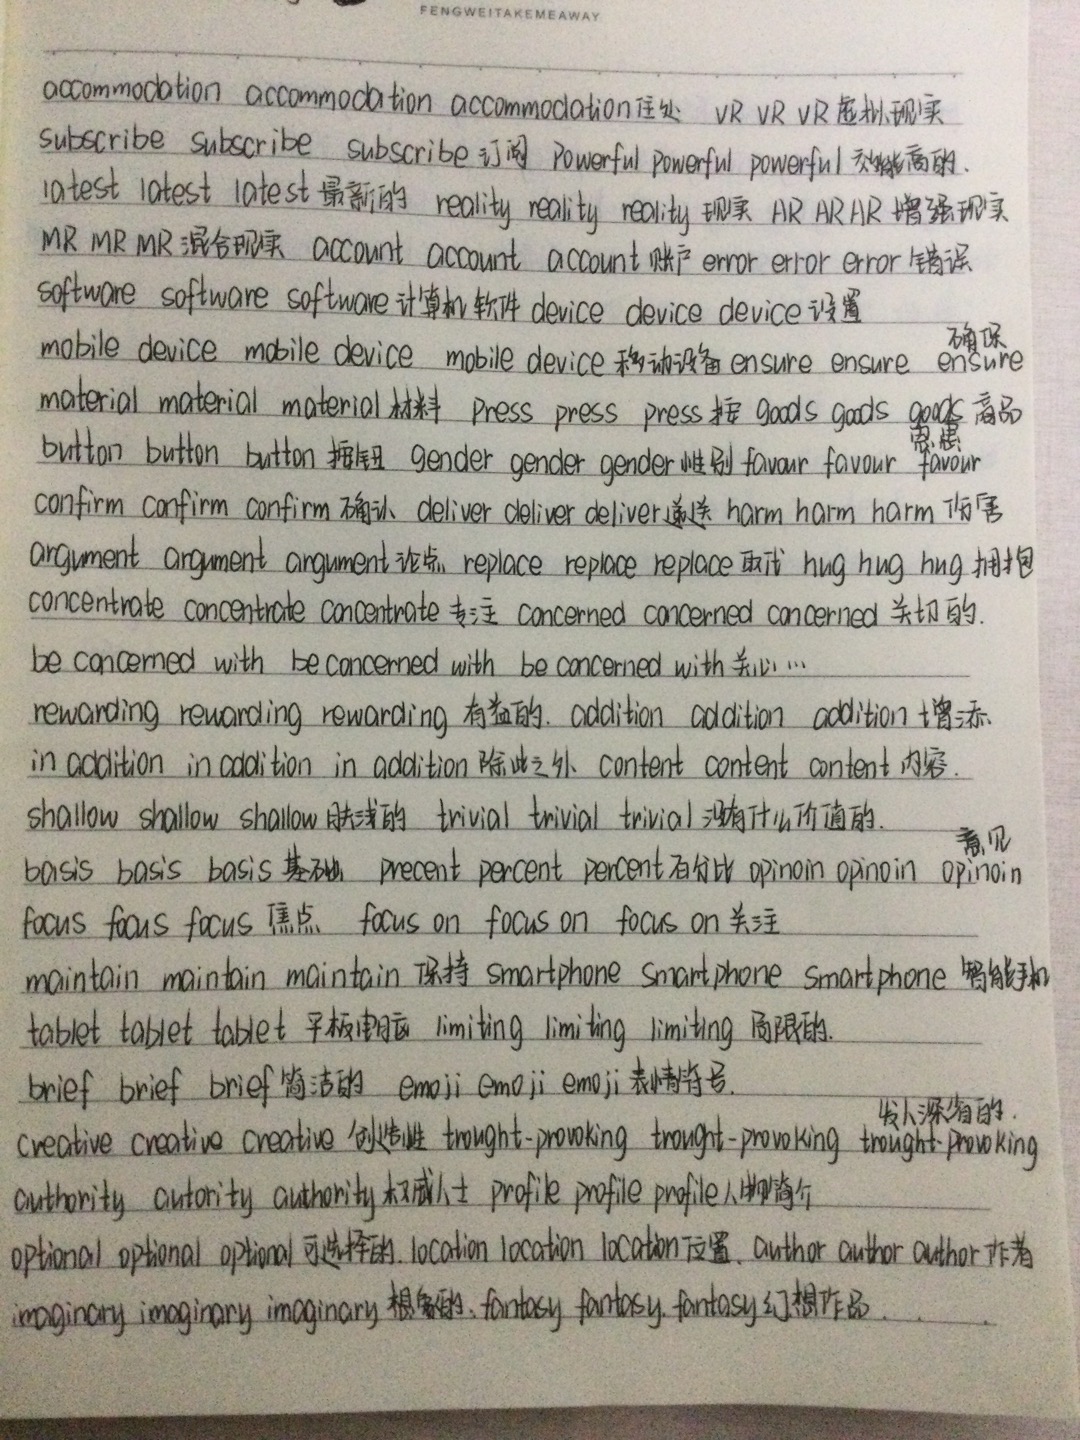 FENGWEITAKEMEAWAY
accommodation accommodation accommodation住处 VR VR VR虚拟现实
subscribe subscribe subscribe订阅 powerful powerful powerful效能高的.
latest latest latest最新的 reality reality reality现实 AR AR AR增强现实
MR MR MR混合现实 account account account账户 error error error错误
software software software计算机软件 device device device设置
确保
mobile device mobile device mobile device移动设备 ensure ensure ensure
material material material材料 press press press按 goods goods goods商品
恩惠
button button button按钮 gender gender gender性别 favour favour favour
confirm confirm confirm确认 deliver deliver deliver递送 harm harm harm伤害
argument argument argument论点 replace replace replace取代 hug hug hug拥抱
concentrate concentrate concentrate专注 concerned concerned concerned关切的.
be concerned with be concerned with be concerned with关心…
rewarding rewarding rewarding有益的. addition addition addition增添
in addition in addition in addition除此之外 content content content内容.
shallow shallow shallow肤浅的 trivial trivial trivial没有什么价值的.
意见
basis basis basis基础 precent percent percent百分比 opinoin opinoin opinoin
focus focus focus焦点 focus on focus on focus on关注
maintain maintain maintain保持 smartphone smartphone smartphone智能手机
tablet tablet tablet平板电脑 limiting limiting limiting局限的.
brief brief brief简洁的 emoji emoji emoji表情符号.
发人深省的.
creative creative creative创造性 trought-provoking trought-provoking trought-provoking
authority autority authority权威人士 profile profile profile人物简介
optional optional optional可选择的. location location location位置. author author author作者
imaginary imaginary imaginary想象的. fantasy fantasy. fantasy幻想作品.